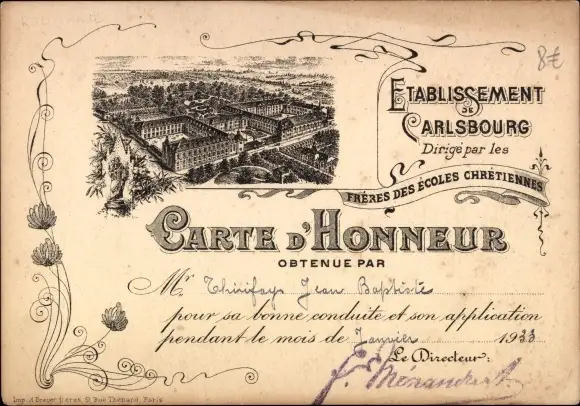 8€
ETABLISSEMENT
DE
CARLSBOURG
Dirigé par les
FRÈRES DES ÉCOLES CHRÉTIENNES
CARTE D'HONNEUR
OBTENUE PAR
Mr Thirifays Jean Baptiste
pour sa bonne conduite et son application
pendant le mois de Janvier 1933
Le Directeur:
Imp. A. Breger frères, 9, Rue Thénard, Paris